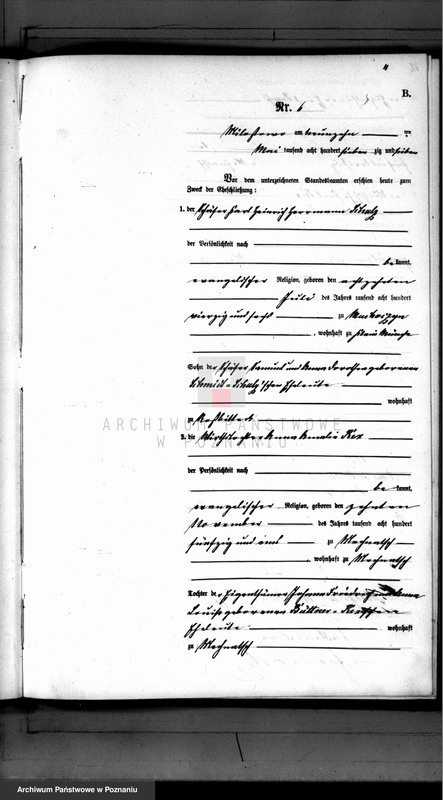 B.
Nr. 6
Milostowo am neunzehn ten
Mai tausend acht hundert sieben zig und sieben
Vor dem unterzeichneten Standesbeamten erschien heute zum
Zweck der Eheschließung:
1. der Schäfer Karl Heinrich Herrmann Schulz
der Persönlichkeit nach
be kannt,
evangelischer Religion, geboren den achtzehnten
Juli des Jahres tausend acht hundert
vierzig und sechs zu
, wohnhaft zu Klein Münche
Sohn der Schäfer Samuel und Anna Dorothea geborenen
Schmidt - Schulz'schen Eheleute
wohnhaft
zu
ARCHIWUM PAŃSTWOWE
W POZNANIU
2. die Wirthstochter Anna Amalie Rex
der Persönlichkeit nach
be kannt,
evangelischer Religion, geboren den zehnten
November des Jahres tausend acht hundert
fünfzig und eins zu Mechnatsch
, wohnhaft zu Mechnatsch
Tochter der Eigenthümer Johann Friedrich und Anna
Louise geborenen Büttner - Rex'schen
Eheleute wohnhaft
zu Mechnatsch
Archiwum Państwowe w Poznaniu